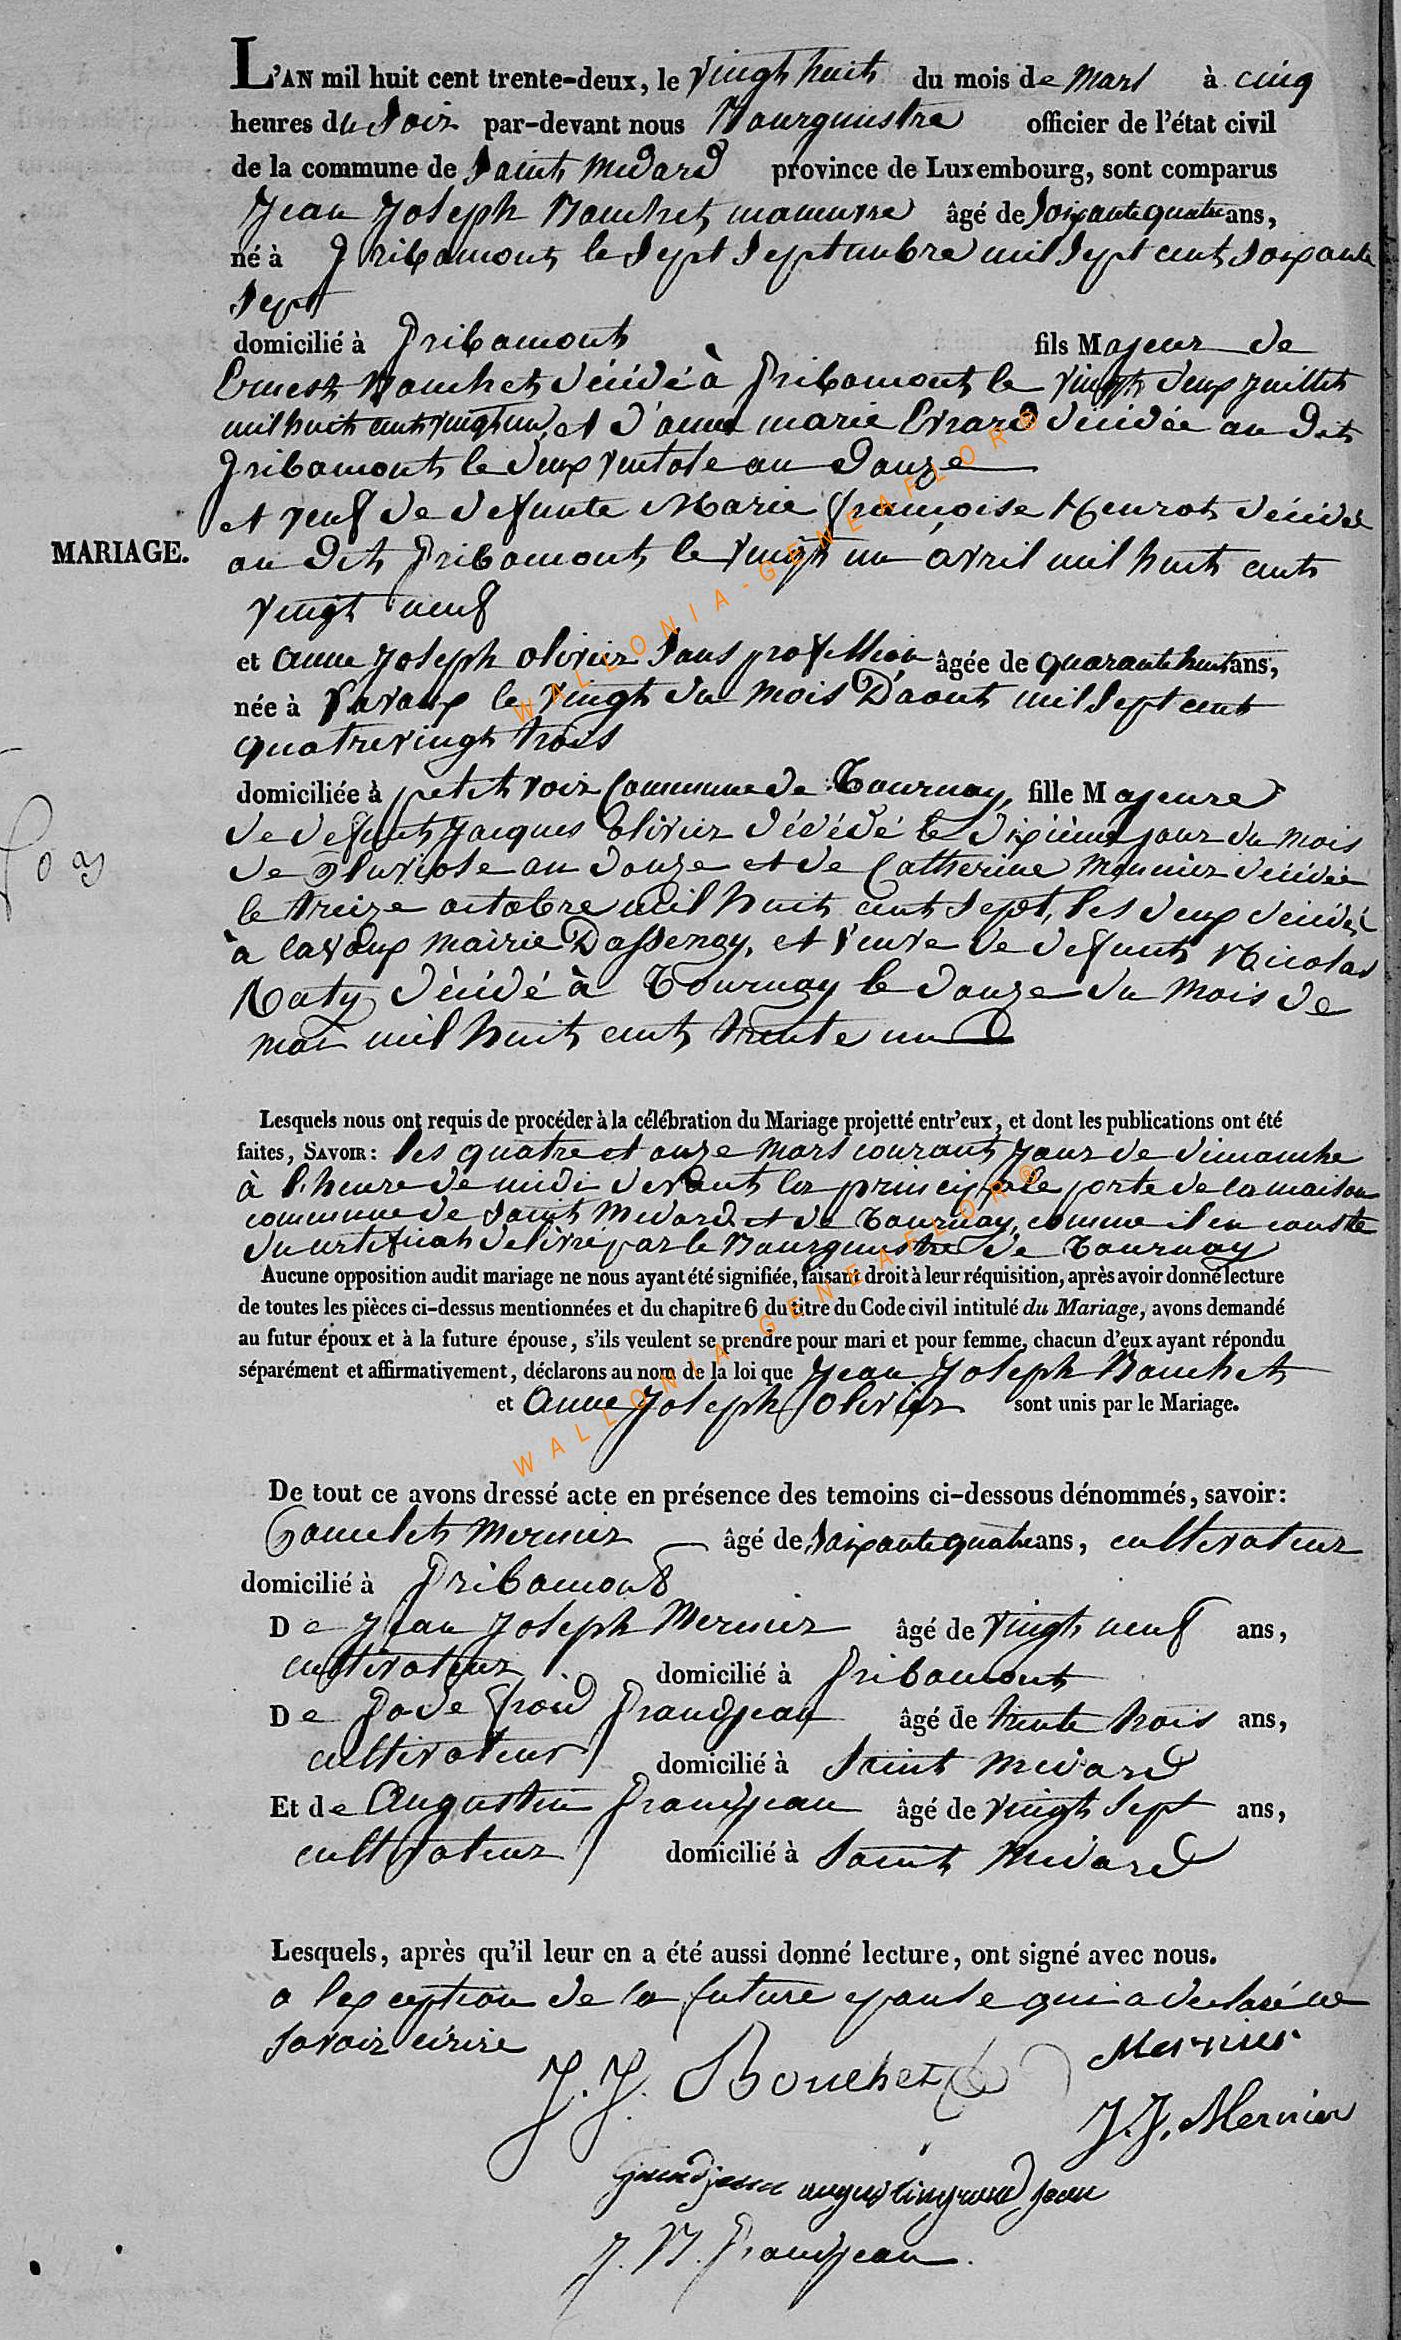 L'AN mil huit cent trente-deux, le vingt huit du mois de mars à cinq
heures du Soir par-devant nous Bourgmestre officier de l'état civil
de la commune de Saint Médard province de Luxembourg, sont comparus
Jean Joseph Bouchet manœuvre âgé de soixante quatre ans,
né à Gribomont le Sept Septembre mil Sept cent Soixante
Sept
domicilié à Gribomont fils Majeur de
Ernest Bouchet décédé à Gribomont le vingt deux juillet
mil huit cent vingt un, et d'anne marie Evrard décédée au dit
Gribomont le deux ventose an douze
et veuf de defunte Marie françoise Henrot décédée
MARIAGE.
au dit Gribomont le vingt un avril mil huit cent
vingt neuf
et anne Joseph olivier Sans profession âgée de quarante huit ans,
née à Lavaux le vingt du mois D'aout mil Sept cent
quatrevingt trois
domiciliée à petitvoir Commune de Tournay, fille Majeure
de defunt Jacques olivier décédé le dixième jour du mois
de Pluviose an douze et de Catherine Meunier décédée
le treize octobre mil huit cent Sept, les deux décédés
à lavaux mairie Dassenoy, et veuve de defunt Nicolas
Naty décédé à Tournay le douze du mois de
mai mil huit cent trente un
Lesquels nous ont requis de procéder à la célébration du Mariage projetté entr'eux, et dont les publications ont été
faites, SAVOIR: les quatre et onze mars courant jour de dimanche
à l'heure de midi devant la principale porte de la maison
commune de Saint Médard et de Tournay, comme il en conste
du certificat délivré par le Bourgmestre de Tournay
Aucune opposition audit mariage ne nous ayant été signifiée, faisant droit à leur réquisition, après avoir donné lecture
de toutes les pièces ci-dessus mentionnées et du chapitre 6 du titre du Code civil intitulé du Mariage, avons demandé
au futur époux et à la future épouse, s'ils veulent se prendre pour mari et pour femme, chacun d'eux ayant répondu
séparément et affirmativement, déclarons au nom de la loi que Jean Joseph Bouchet
et Anne Joseph olivier sont unis par le Mariage.
De tout ce avons dressé acte en présence des temoins ci-dessous dénommés, savoir:
Mernier âgé de soixante quatre ans, cultivateur
domicilié à Gribomont
De Jean Joseph Mernier âgé de vingt neuf ans,
cultivateur domicilié à Gribomont
De Godefroid Grandjean âgé de trente trois ans,
cultivateur domicilié à Saint Médard
Et de Augustin Grandjean âgé de vingt Sept ans,
cultivateur domicilié à Saint Médard
Lesquels, après qu'il leur en a été aussi donné lecture, ont signé avec nous.
a l'exception de la future epouse qui a déclaré ne
Savoir écrire
Mernier
J. J. Bouchet
J. J. Mernier
Grandjean augustin grand jean
J. B. Grandjean.
WALLONIA-GENEAFLOR®
WALLONIA-GENEAFLOR®